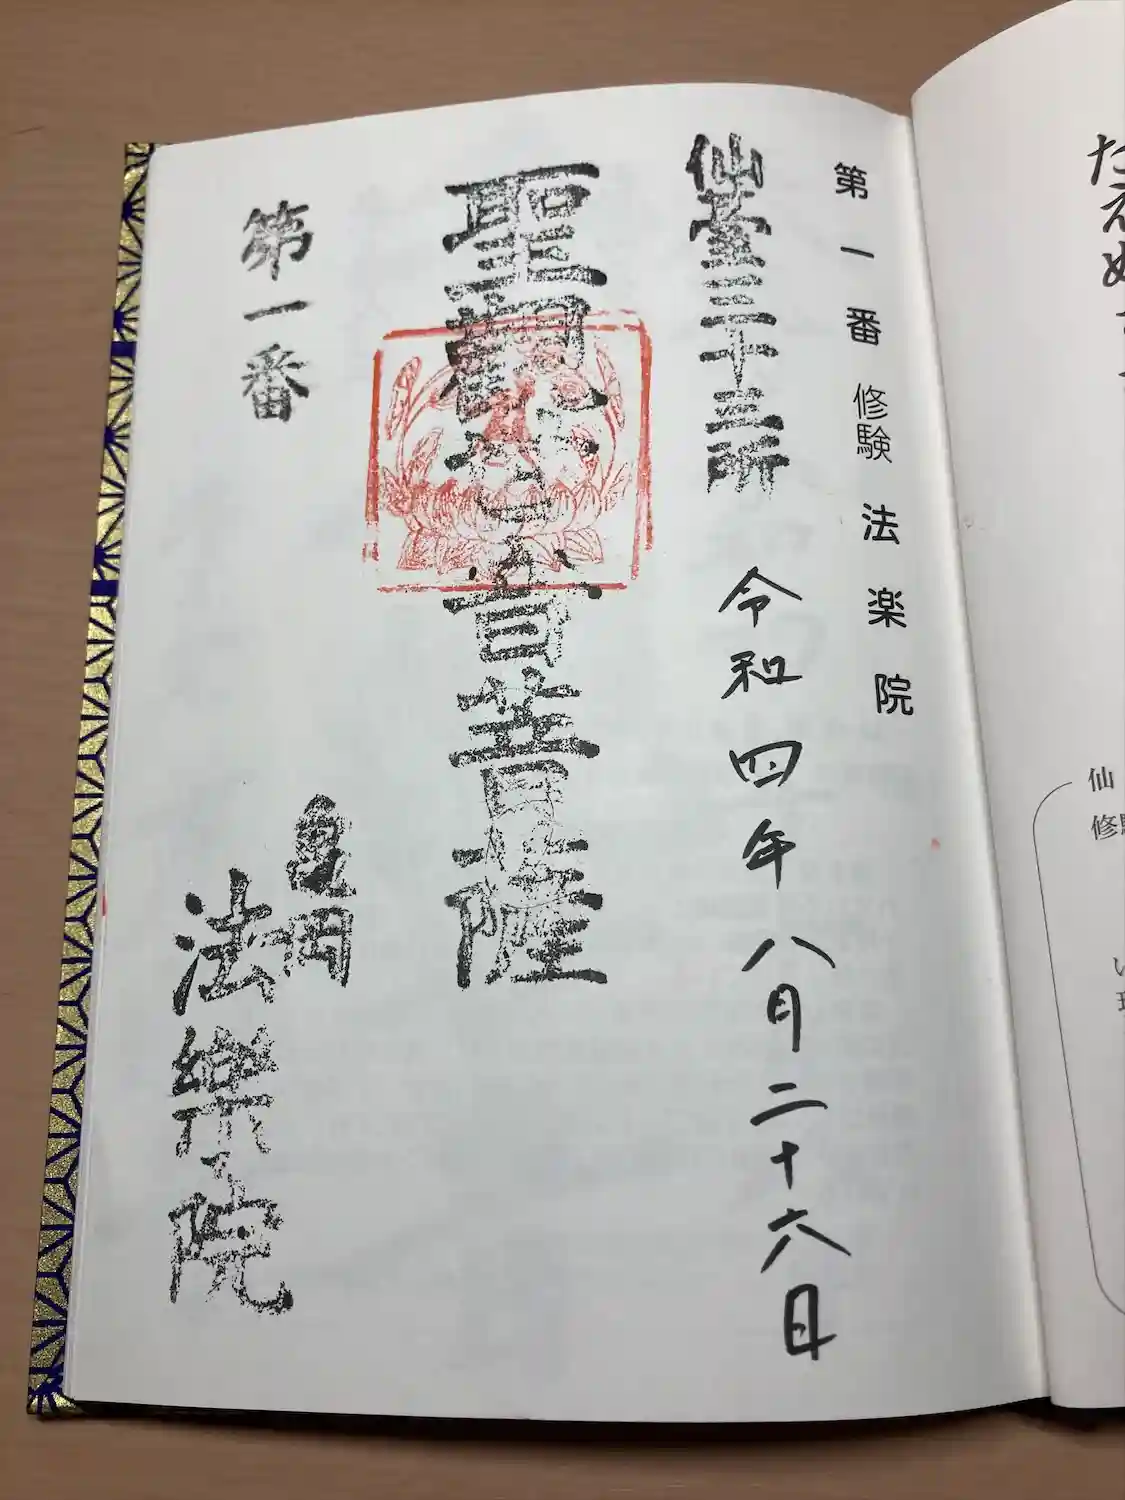 たえぬ
仙
修
い
第一番 修験 法楽院
仙臺三十三所
令和四年八月二十六日
聖觀世音菩薩
第一番
亀岡
法樂院